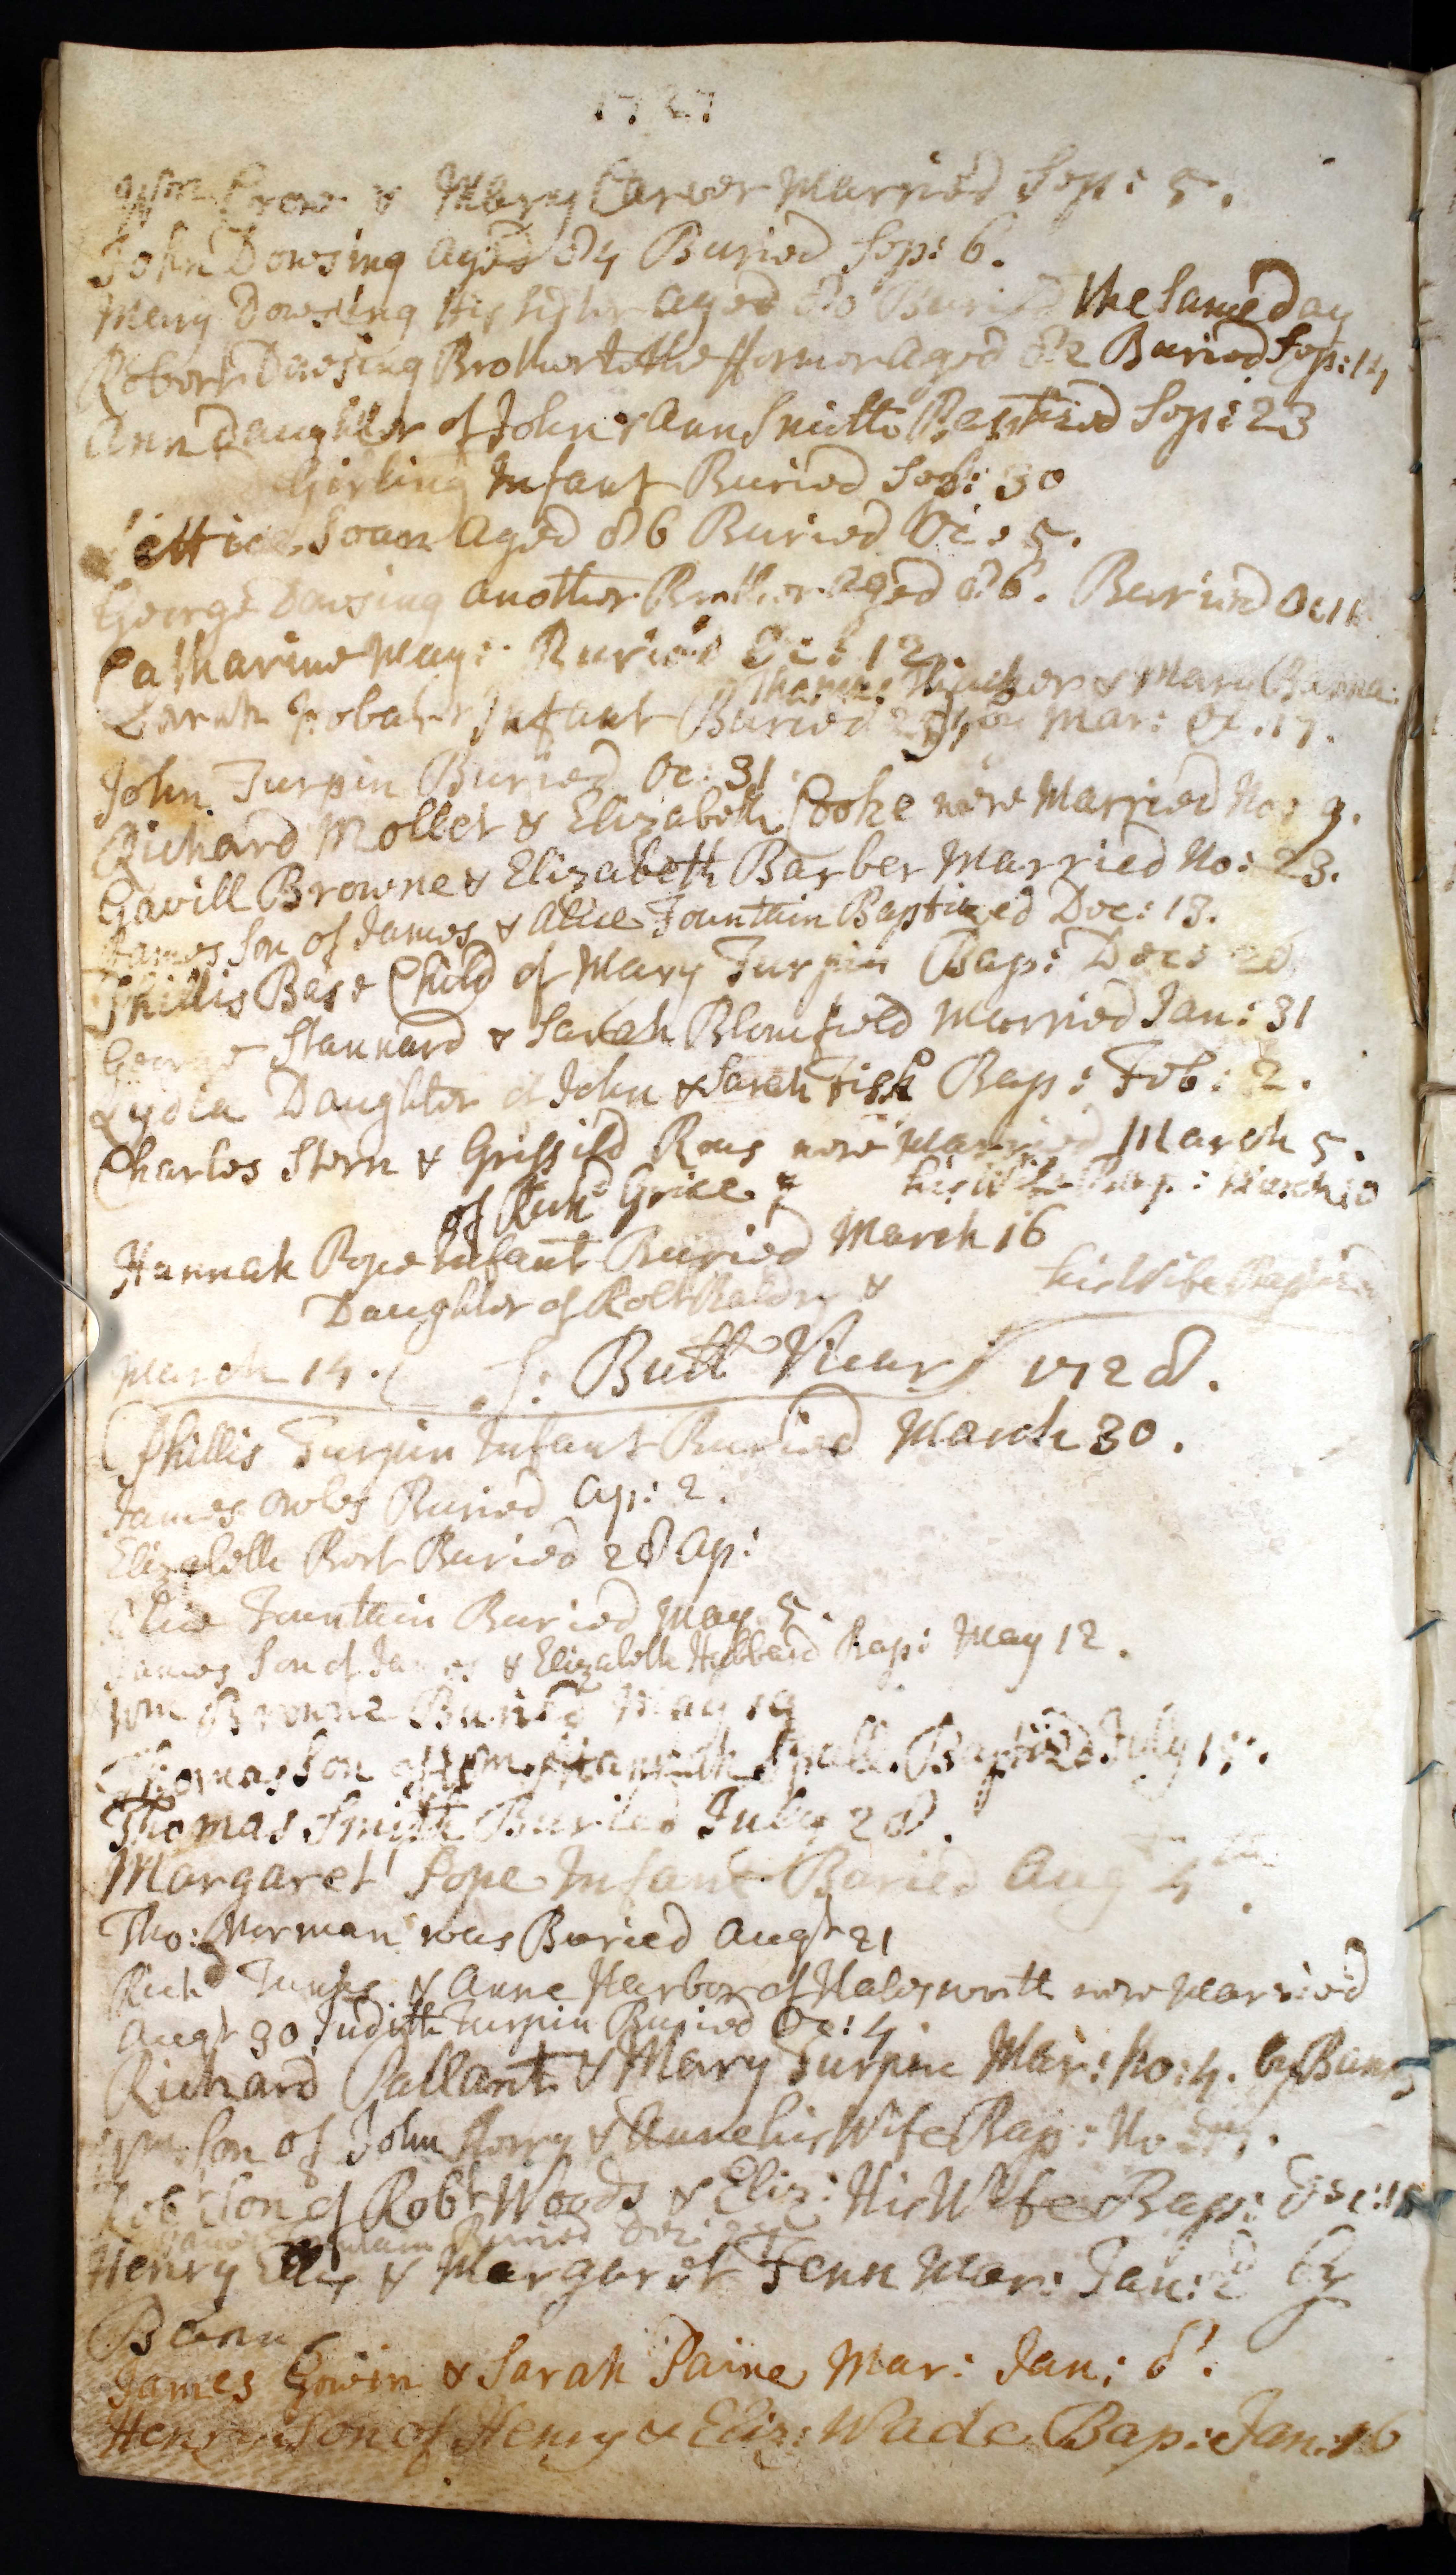 1727
Wm Crow & Mary Carver Married Sep: 5.
John Dowsing aged 84 Buried Sep: 6.
Mary Dowsing His Sister aged 80 Buried the Same Day
Robert Dowsing Brother to the former aged 82 Buried Sep: 14
Ann Daughter of John & Ann Smith Baptized Sep: 23
Girling Infant Buried Sep: 30
Lettice Soan aged 86 Buried Oc: 5.
George Dowsing another Brother aged 86. Buried Oc
Catharine May: Buried Oc: 12
Thomas & Mary
Sarah Infant Buried Mar: Oc. 17.
John Turpin Buried Oc: 31
Richard Mollet & Elizabeth Cooke were Married No: 9.
Gavill Browne & Elizabeth Barber Married No: 23.
James Son of James & Alice Fountain Baptized Dec: 13.
Phillis Base Child of Mary Turpin Bap: Dec: 26
George Stannard & Sarah Blomfield Married Jan: 31
Lydia Daughter of John & Sarah Fisk Bap: Feb: 2.
Charles Stern & Grissild Rous were Married March 5.
of Richd Grice & his Wife Bap: March 10
Hannah Pope Infant Buried March 16
Daughter of Robt Baldry & his Wife Baptized
March 14. S: Butt Vicar 1728.
Phillis Turpin Infant Buried March 30.
James Owles Buried Ap: 2.
Elizabeth Bort Buried 28 Ap:
Alice Fountain Buried May 5.
James Son of James & Elizabeth Hubbard Bap: May 12.
Wm Browne Buried May 19
Thomas Son of Wm & Hannah Spall Baptized July 15.
Thomas Smith Buried July 28.
Margaret Pope Infant Buried Aug 4th.
Tho: Norman was Buried Augt 21
Richd & Anne Harbor of Halesworth were Married
Augt 30 Judith Turpin Buried Oc: 4
Richard Pallant & Mary Turpin Mar: No: 4. by Banns
Wm Son of John & Anne his Wife Bap: No
Robt Son of Robt Woods & Eliz: His Wife Bap: Dec: 15
Buried Dec:
Henry & Margaret Fenn Mar: Jan: 2d by
Banns
James Gowin & Sarah Paine Mar: Jan: 8.
Henry Son of Henry & Eliz: Wade Bap: Jan: 16